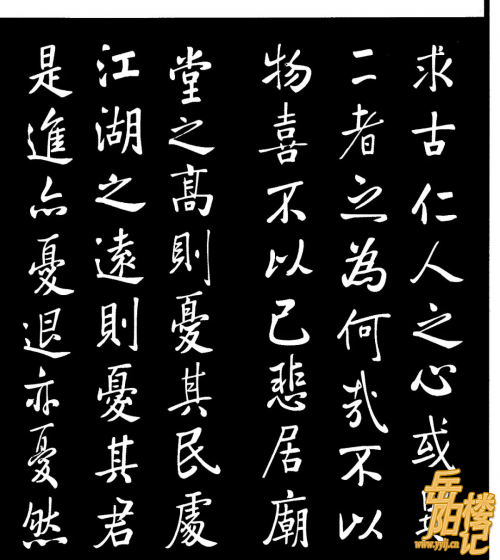 求古仁人之心或異
二者之為何哉不以
物喜不以己悲居廟
堂之高則憂其民處
江湖之遠則憂其君
是進亦憂退亦憂然
岳陽楼记
www.yylj.cn